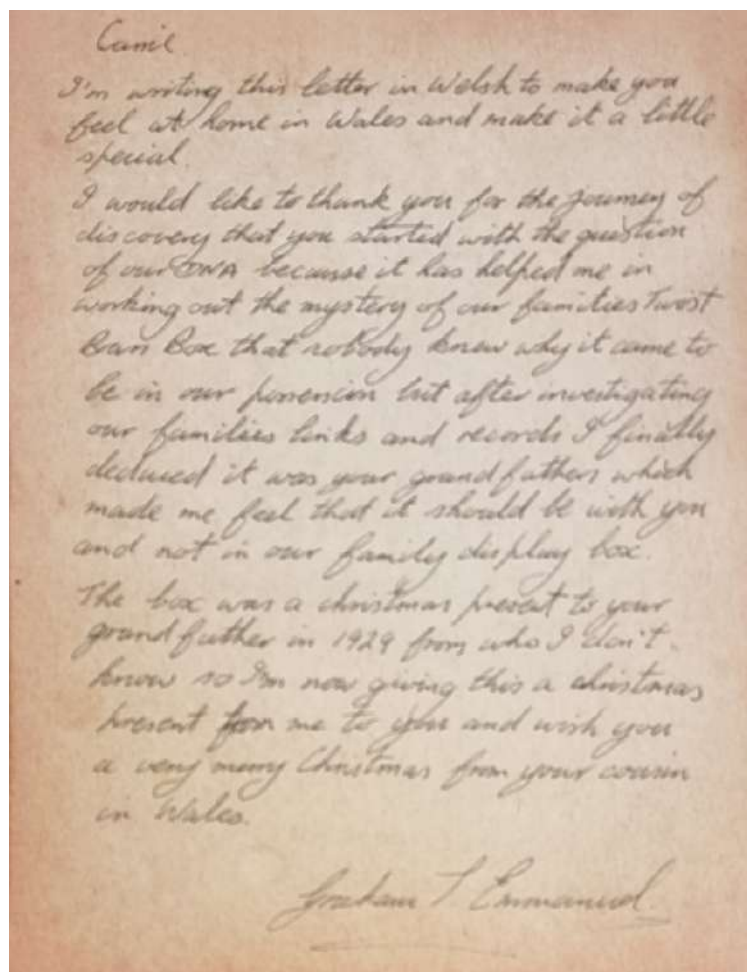 I'm writing this letter in Welsh to make you
feel at home in Wales and make it a little
special.
I would like to thank you for the journey of
discovery that you started with the question
of our DNA because it has helped me in
working out the mystery of our families Twist
Box that nobody knew why it came to
be in our possession but after investigating
our families links and records I finally
deduced it was your grandfathers which
made me feel that it should be with you
and not in our family display box.
The box was a christmas present to your
grandfather in 1929 from who I don't
know so I'm now giving this a christmas
present from me to you and wish you
a very merry Christmas from your cousin
in Wales.
Graham T Emmanuel